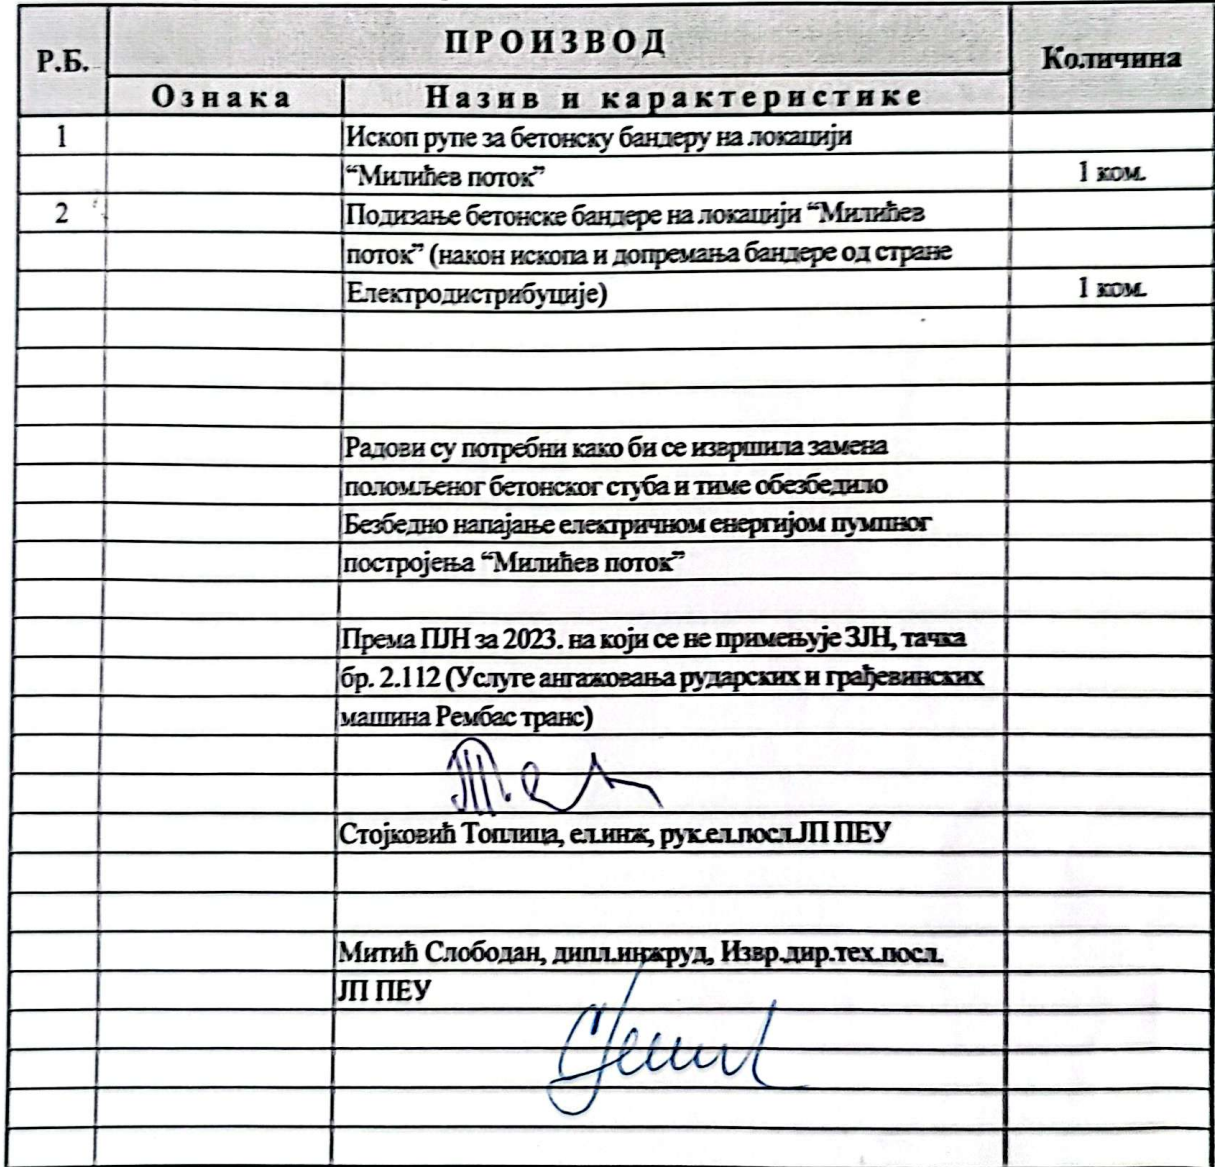 Р.Б.
ПРОИЗВОД
Количина
Ознака
Назив и карактеристике
1
Ископ рупе за бетонску бандеру на локацији
“Милићев поток”
1 ком.
2
Подизање бетонске бандере на локацији “Милићев
поток” (након ископа и допремања бандере од стране
Електродистрибуције)
1 ком.
Радови су потребни како би се извршила замена
поломљеног бетонског стуба и тиме обезбедило
Безбедно напајање електричном енергијом пумпног
постројења “Милићев поток”
Према ПЈН за 2023. на који се не примењује ЗЈН, тачка
бр. 2.112 (Услуге ангажовања рударских и грађевинских
машина Рембас транс)
Стојковић Топлица, ел.инж, рук.ел.посл.ЈП ПЕУ
Митић Слободан, дипл.инж.руд, Извр.дир.тех.посл.
ЈП ПЕУ